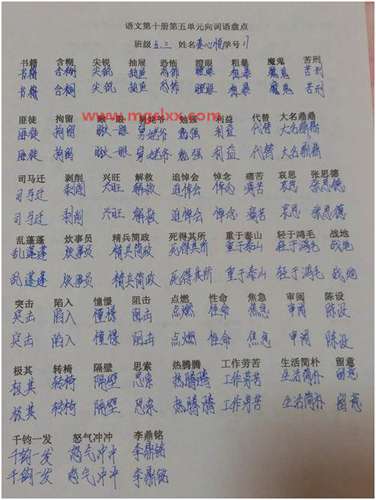 语文第十册第五单元向词语盘点
班级 五.三 姓名 心悦 学号 11
书籍 含糊 尖锐 抽屉 恐怖 瞪眼 粗暴 魔鬼 苦刑
书籍 含糊 尖锐 抽屉 恐怖 瞪眼 粗暴 魔鬼 苦刑
书籍 含糊 尖锐 抽屉 恐怖 瞪眼 粗暴 魔鬼 苦刑
www.mgslxx.com
匪徒 拘留 瞅 眼 舅姥爷 勉强 利益 代替 大名鼎鼎
匪徒 拘留 瞅 眼 舅姥爷 勉强 利益 代替 大名鼎鼎
匪徒 拘留 瞅 眼 舅姥爷 勉强 利益 代替 大名鼎鼎
司马迁 剥削 兴旺 解救 追悼会 悼念 痛苦 哀思 张思德
司马迁 剥削 兴旺 解救 追悼会 悼念 痛苦 哀思 张思德
司马迁 剥削 兴旺 解救 追悼会 悼念 痛苦 哀思 张思德
乱蓬蓬 炊事员 精兵简政 死得其所 重于泰山 轻于鸿毛 战地
乱蓬蓬 炊事员 精兵简政 死得其所 重于泰山 轻于鸿毛 战地
乱蓬蓬 炊事员 精兵简政 死得其所 重于泰山 轻于鸿毛 战地
突击 陷入 憧憬 阻击 点燃 性命 焦急 审阅 陈设
突击 陷入 憧憬 阻击 点燃 性命 焦急 审阅 陈设
突击 陷入 憧憬 阻击 点燃 性命 焦急 审阅 陈设
极其 转椅 隔壁 思索 热腾腾 工作劳苦 生活简朴 留意
极其 转椅 隔壁 思索 热腾腾 工作劳苦 生活简朴 留意
极其 转椅 隔壁 思索 热腾腾 工作劳苦 生活简朴 留意
千钧一发 怒气冲冲 李鼎铭
千钧一发 怒气冲冲 李鼎铭
千钧一发 怒气冲冲 李鼎铭